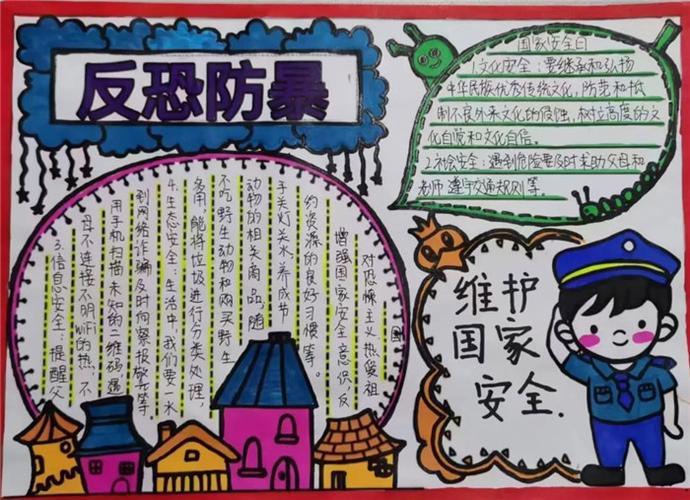 反恐防暴
国家安全日
1.文化安全：要继承和弘扬
中华民族优秀传统文化，防范和抵
制不良外来文化的侵蚀，树立高度的文
化自觉和文化自信。
2.社会安全：遇到危险要及时求助父母和
老师 遵守交通规则等。
3.信息安全：提醒父
母不连接不明WiFi的热，不
用手机扫描未知的二维码，遇
到网络诈骗及时向警报警等
4.生态安全：生活中，我们要一水
多用，能将垃圾进行分类处理，
不吃野生动物和购买野生
动物的相关商品，随
手关灯关水，养成节
约资源的良好习惯等。
增强国家安全意识，反
对恐怖主义 热爱祖
国
维护
国家
安全.